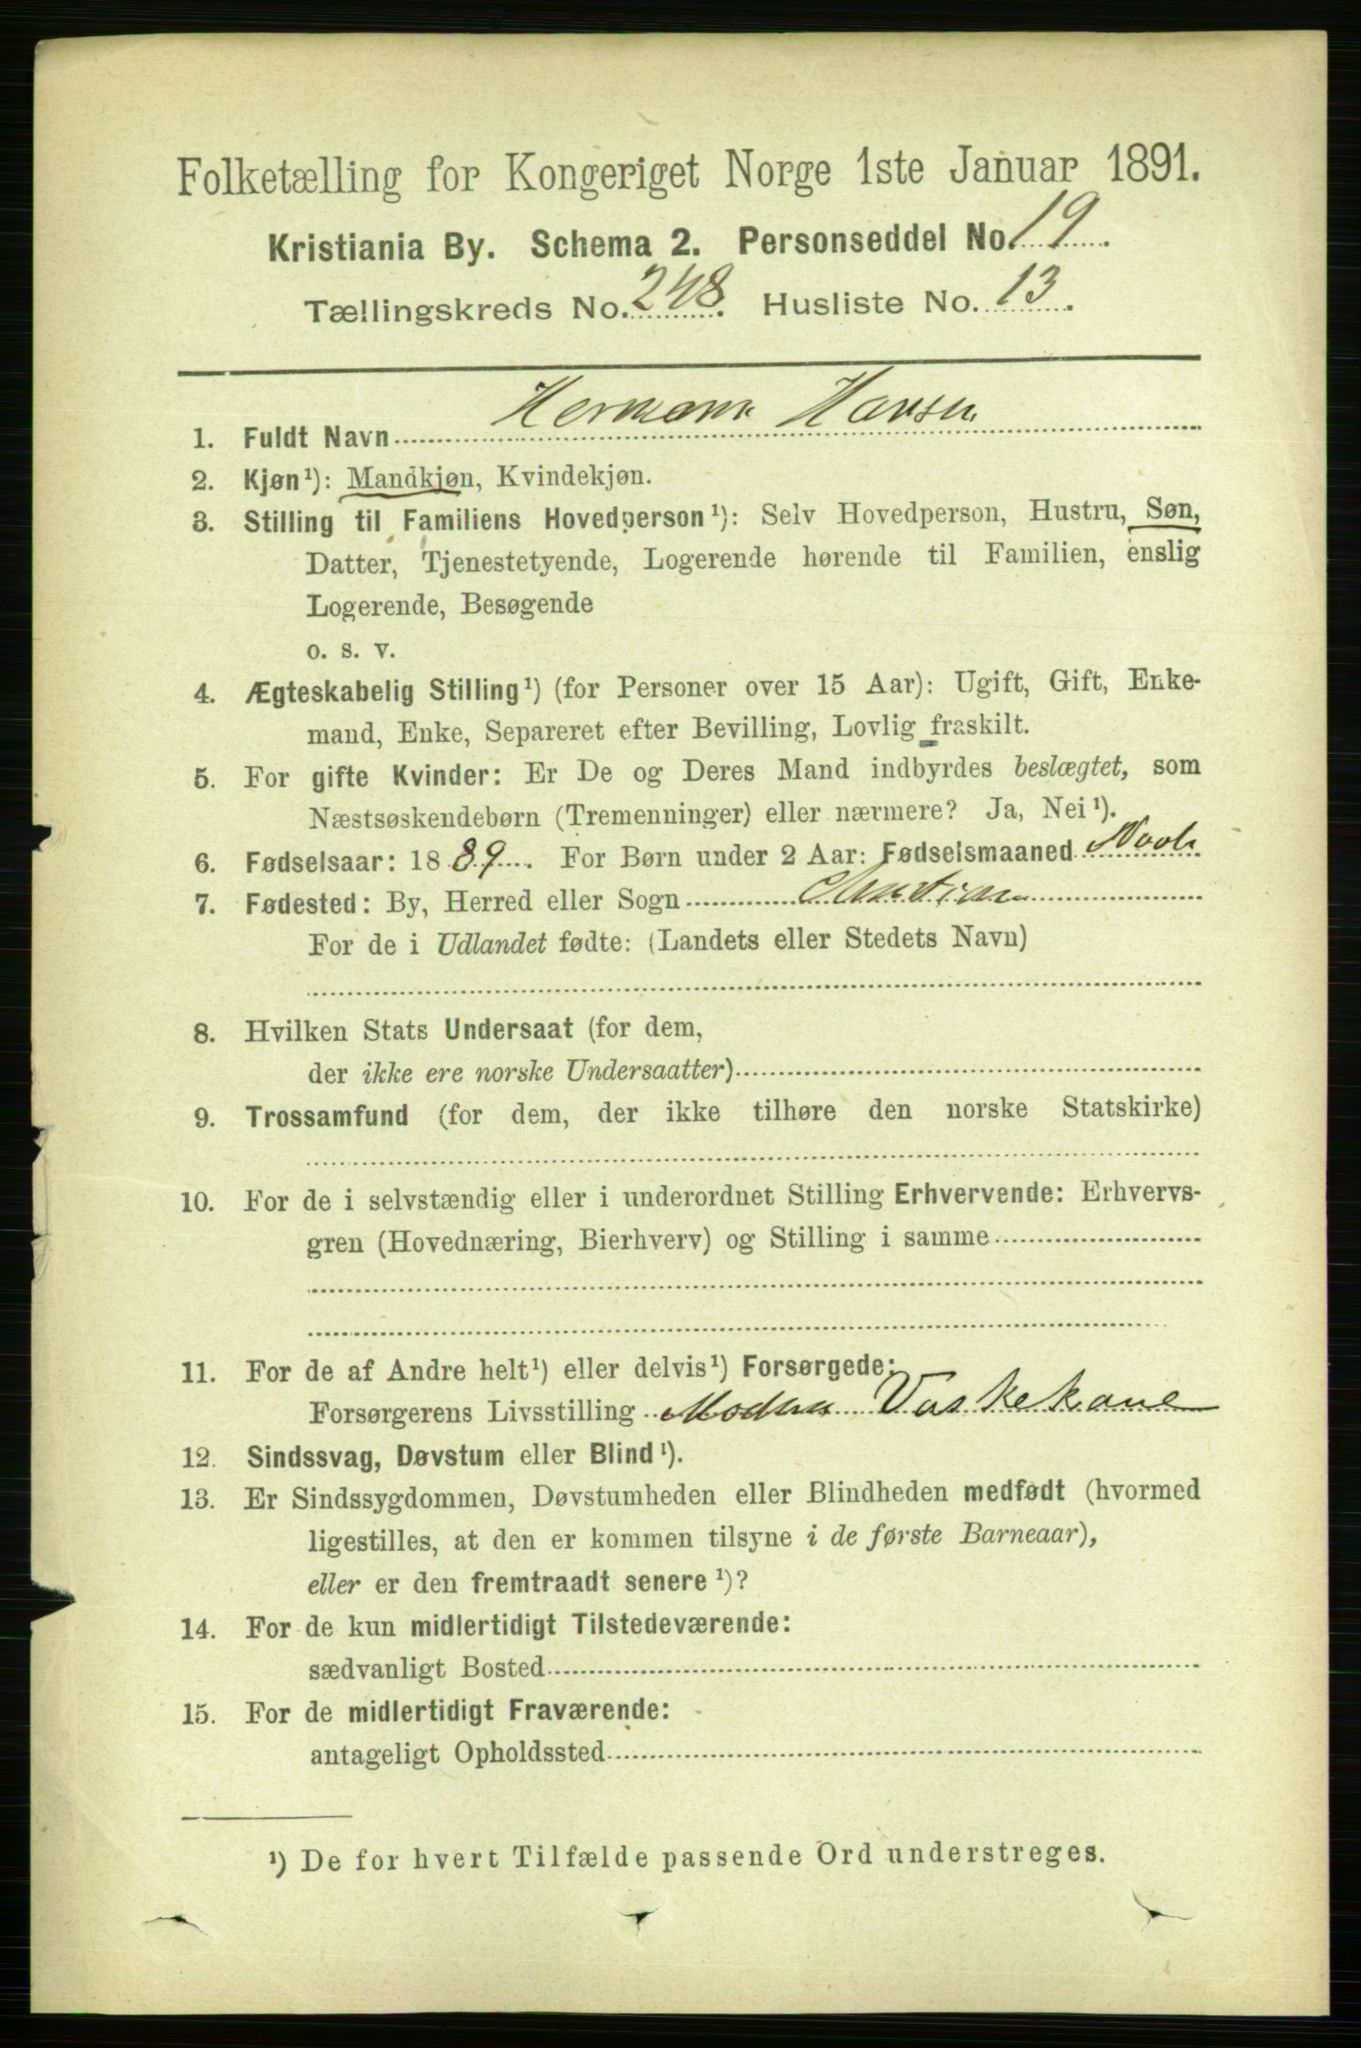 Folketælling for Kongeriget Norge 1ste Januar 1891.
Kristiania By. Schema 2. Personseddel No. 19.
Tællingskreds No. 248. Husliste No. 13.
1. Fuldt Navn Hermann Hansen
2. Kjøn¹): Mandkjøn, Kvindekjøn.
3. Stilling til Familiens Hovedperson¹): Selv Hovedperson, Hustru, Søn,
Datter, Tjenestetyende, Logerende hørende til Familien, enslig
Logerende, Besøgende
o. s. v.
4. Ægteskabelig Stilling¹) (for Personer over 15 Aar): Ugift, Gift, Enke-
mand, Enke, Separeret efter Bevilling, Lovlig fraskilt.
5. For gifte Kvinder: Er De og Deres Mand indbyrdes beslægtet, som
Næstsøskendebørn (Tremenninger) eller nærmere? Ja, Nei¹).
6. Fødselsaar: 1889. For Børn under 2 Aar: Fødselsmaaned
7. Fødested: By, Herred eller Sogn
For de i Udlandet fødte: (Landets eller Stedets Navn)
8. Hvilken Stats Undersaat (for dem,
der ikke ere norske Undersaatter)
9. Trossamfund (for dem, der ikke tilhøre den norske Statskirke)
10. For de i selvstændig eller i underordnet Stilling Erhvervende: Erhvervs-
gren (Hovednæring, Bierhverv) og Stilling i samme
11. For de af Andre helt¹) eller delvis¹) Forsørgede:
Forsørgerens Livsstilling Moderen Vaskekone
12. Sindssvag, Døvstum eller Blind¹).
13. Er Sindssygdommen, Døvstumheden eller Blindheden medfødt (hvormed
ligestilles, at den er kommen tilsyne i de første Barneaar),
eller er den fremtraadt senere¹)?
14. For de kun midlertidigt Tilstedeværende:
sædvanligt Bosted
15. For de midlertidigt Fraværende:
antageligt Opholdssted
¹) De for hvert Tilfælde passende Ord understreges.